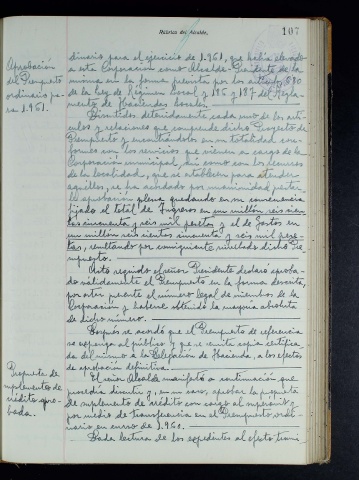 Rúbrica del Alcalde,
107
dinario para el ejercicio de 1.961, que había elevado
a esta Corporación como Alcalde-Presidente de la
misma en la forma prevista por los artículos 680
de la Ley de Régimen Local y 186 y 187 del Regla-
mento de Haciendas Locales.
Aprobación
del Presupuesto
ordinario pa-
ra 1.961.
Discutidos detenidamente cada uno de los artí-
culos y relaciones que comprende dicho Proyecto de
Presupuesto y encontrándolos en su totalidad con-
formes con los servicios que vienen a cargo de la
Corporación municipal, así como con los recursos
de la localidad, que se establecen para atender
aquéllos, se ha acordado por unanimidad prestar-
le aprobación plena quedando en su consecuencia
fijado el total de Ingresos en un millón seiscien-
tas cincuenta y seis mil pesetas y el de Gastos en
un millón seiscientas cincuenta y seis mil pese-
tas, resultando por consiguiente nivelado dicho Pre-
supuesto.
Acto seguido el señor Presidente declaró aproba-
do válidamente el Presupuesto en la forma descrita,
por estar presente el número legal de miembros de la
Corporación y haberse obtenido la mayoría absoluta
de dicho número.
Después se acordó que el Presupuesto de referencia
se exponga al público y que se remita copia certifica-
da del mismo a la Delegación de Hacienda, a los efectos
de aprobación definitiva.
Propuesta de
suplementos de
crédito apro-
bada.
El señor Alcalde manifestó a continuación que
procedía discutir y, en su caso, aprobar la propuesta
de suplemento de crédito con cargo al superávit y
por medio de transferencia en el Presupuesto ordi-
nario en curso de 1.960.
Dada lectura de los expedientes al efecto trami-